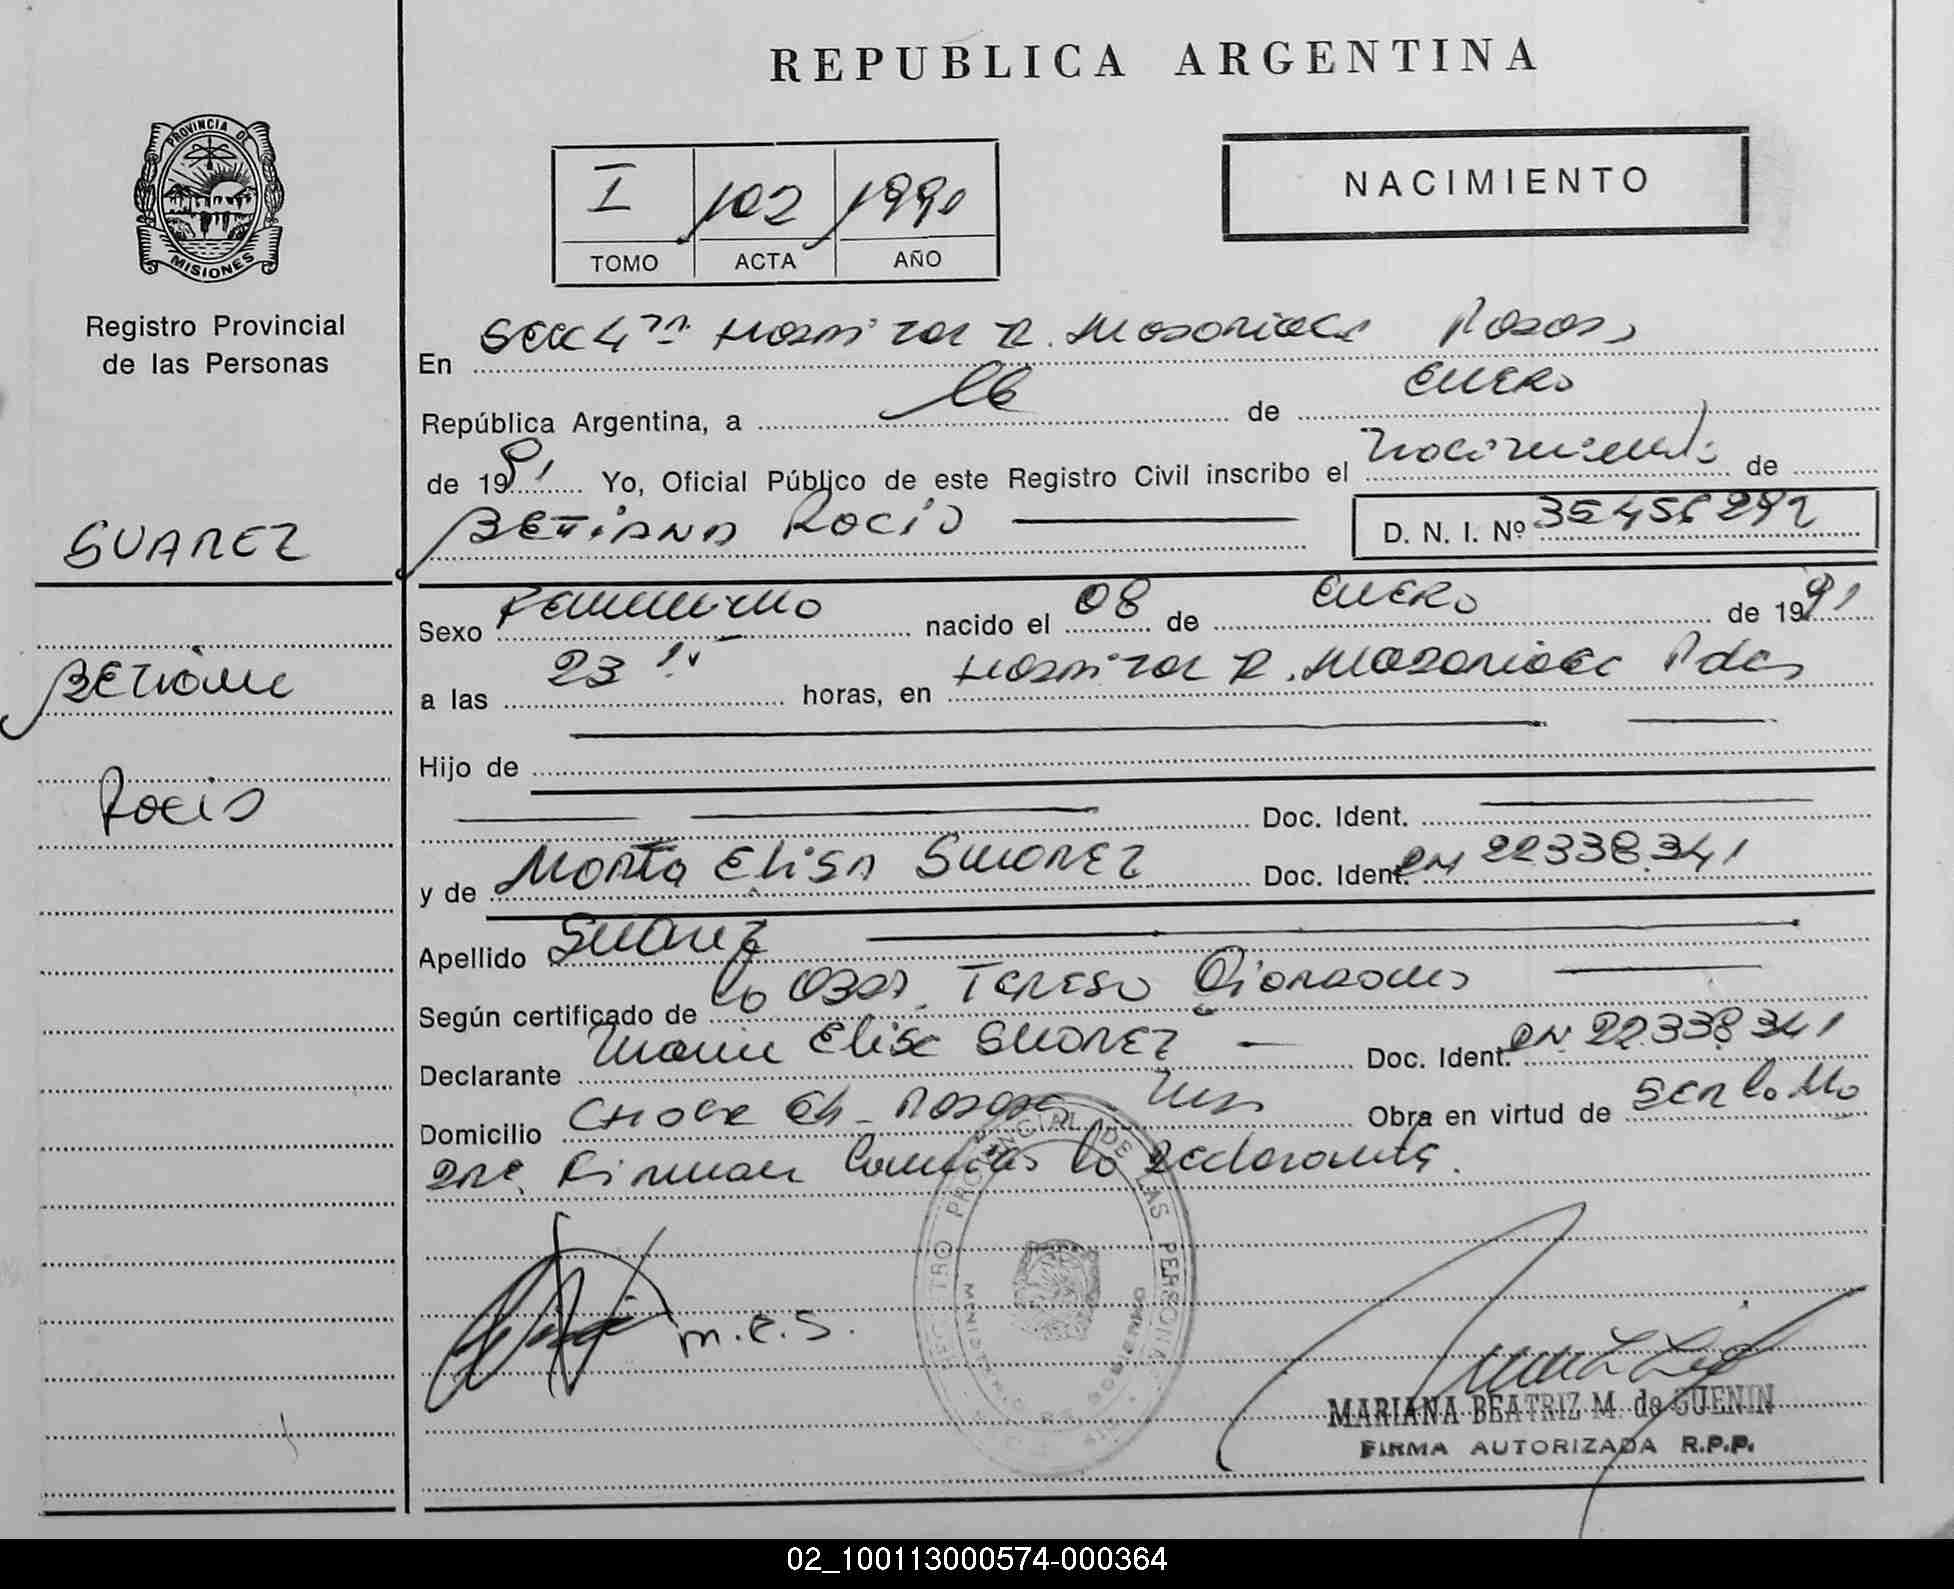 REPUBLICA ARGENTINA
PROVINCIA DE
MISIONES
Registro Provincial
de las Personas
NACIMIENTO
I 102 1991
TOMO ACTA AÑO
En Secc 4ta Hospital R. Madariaga Posadas
República Argentina, a 16 de Enero
de 1991 Yo, Oficial Público de este Registro Civil inscribo el Nacimiento de
BETIANA ROCIO D. N. I. Nº
SUAREZ
Sexo Femenino nacido el 08 de Enero de 1991
Betiana
a las 23 horas, en Hospital R. Madariaga Pdas
Hijo de
Rocio
Doc. Ident.
y de Elisa Suarez Doc. Ident. 22338341
Apellido Suarez
Según certificado de la Obst. Teresa
Declarante Elisa Suarez Doc. Ident. 22338341
Domicilio Posadas Obra en virtud de ser la Ma
dre. Firman la declarante.
REGISTRO PROVINCIAL DE LAS PERSONAS
MINISTERIO DE GOBIERNO
m.e.s.
MARIANA BEATRIZ M. de GUENIN
FIRMA AUTORIZADA R.P.P.
02_100113000574-000364